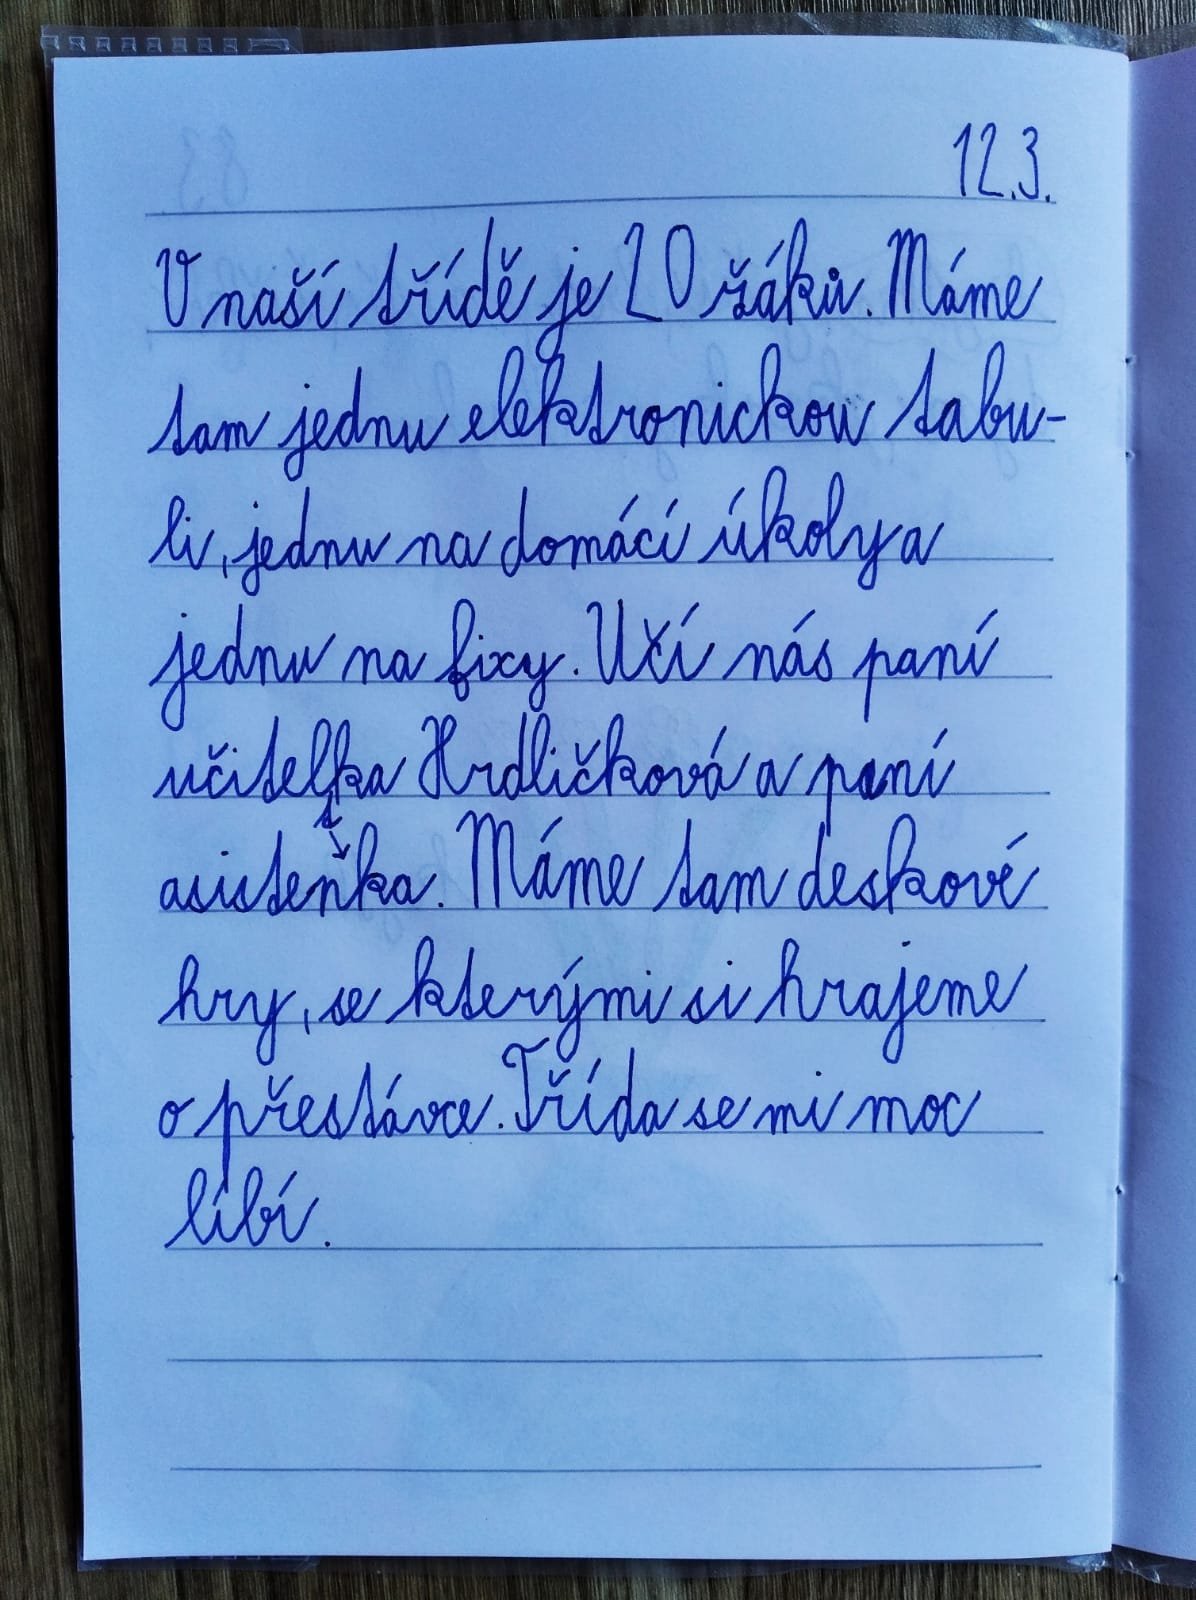 12.3.
V naší třídě je 20 žáků. Máme
tam jednu elektronickou tabu-
li, jednu na domácí úkoly a
jednu na fixy. Učí nás paní
učitelka Hrdličková a paní
asistentka. Máme tam deskové
hry, se kterými si hrajeme
o přestávce. Třída se mi moc
líbí.